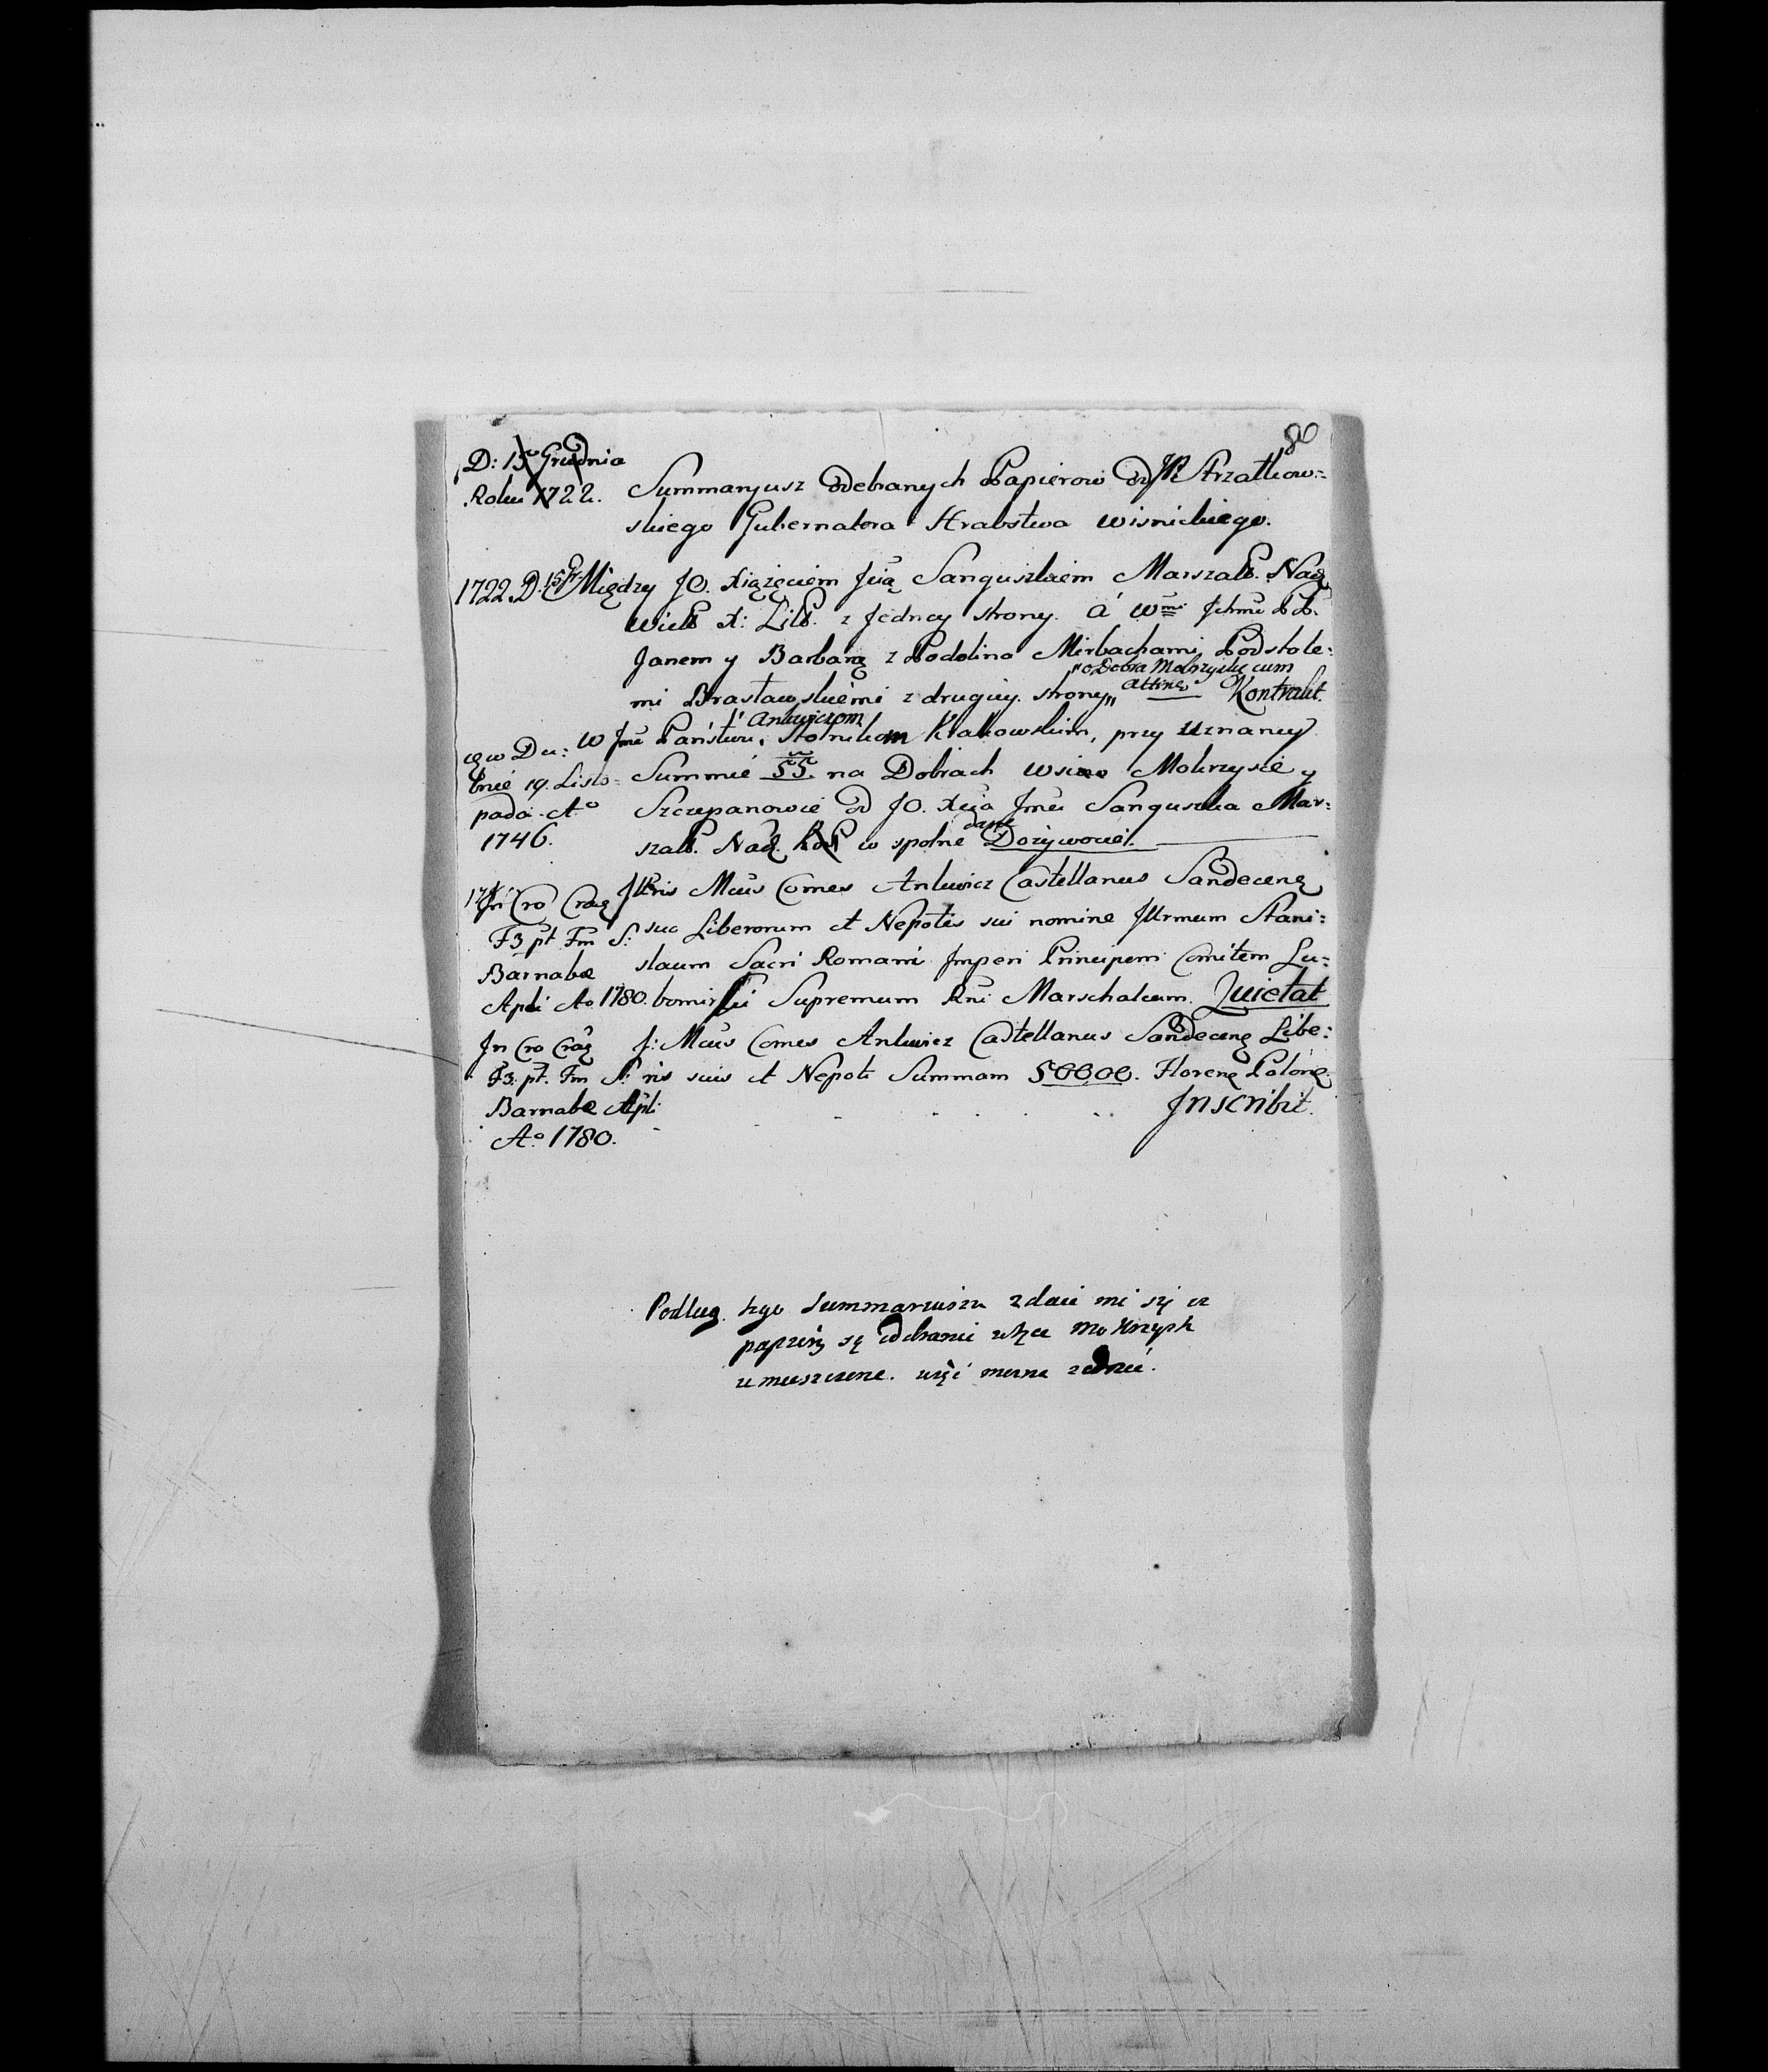 80
D: 15º Grudnia
Roku 1722.
Summaryusz odebranych Papierow od JP. Strzałkow=
skiego Gubernatora Hrabstwa Wisnickiego.
1722. D. 15 Gr
Między JO. Xiążęciem Jmią Sanguszkiem Marszałk. Nad
Wielk X: Litt. z Jedney strony. á Wmi Ichmć PP.
Janem y Barbarą z Podolina Mirbachami Podstole=
"o Dobra Mokrzyskę cum
mi Brasławskiemi z drugiey strony" attinen Kontrakt.
w Du:
bnie 19. Listo=
pada Aº
1746.
Ankwiczom
W Jmć Państwu, Stolnikom Krakowskim, przy Uznaney
Summie 55. na Dobrach wsiow Mokrzysce y
Szczepanowie od JO. Xcia Jmci Sanguszka Mar=
dane
szałk. Nad. w spolne Dożywocie.
In Cro Crac
F3 pt Fm S:
Barnabæ
Apli Aº 1780.
Illris Mcus Comes Ankwicz Castellanus Sandecen
suo Liberorum et Nepotis sui nomine Illrmum Stani=
slaum Sacri Romani Imperi Principem Comitem Lu=
bomirski Supremum Rni Marschalcum. Quietat
In Cro Crac
F3. pt. Fm S:
Barnabæ Apli
Aº 1780.
J: Mcus Comes Ankwicz Castellanus Sandecen Libe=
ris suis et Nepoti Summam 50000. Floren Polon
Inscribit.
Podlug tego Summariusza zdaie mi się iż
papiery są odebranie Mokrzysk
umieszczone.